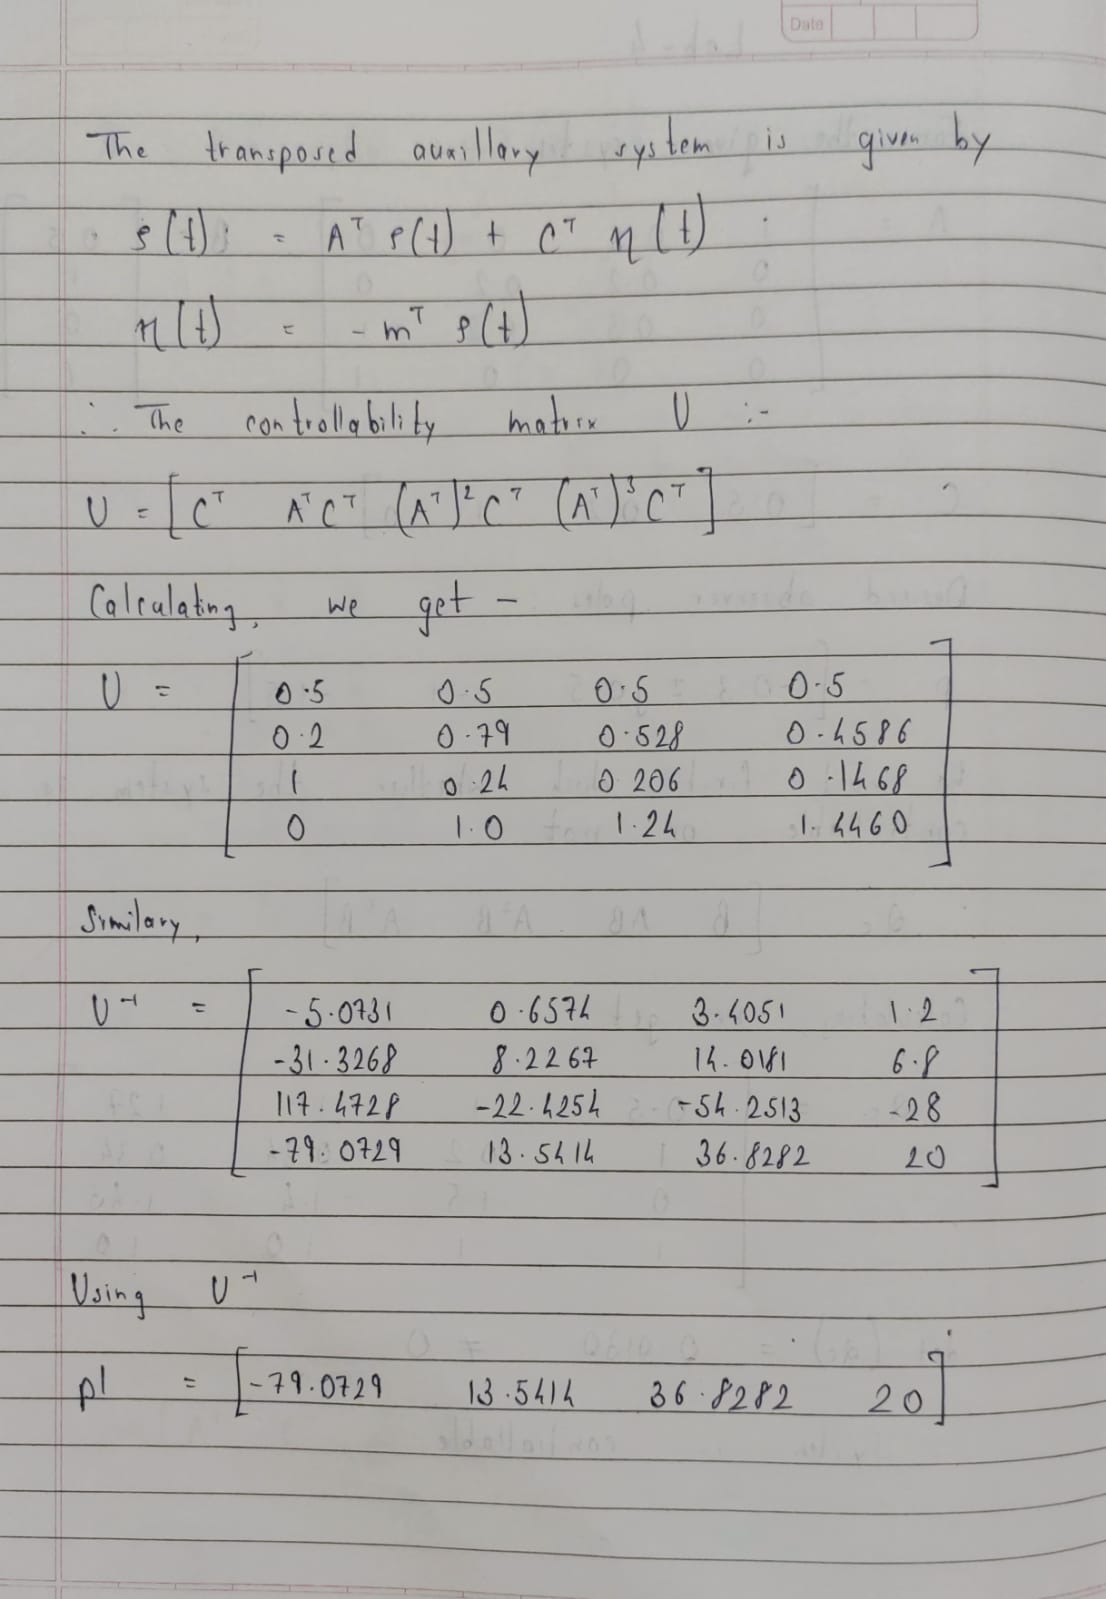 Date
The transposed auxillary system is given by
ṡ(t) = Aᵀ ρ(t) + Cᵀ η(t)
η(t) = - mᵀ ρ(t)
∴ The controllability matrix U :-
U = [ Cᵀ AᵀCᵀ (Aᵀ)²Cᵀ (Aᵀ)³Cᵀ ]
Calculating, we get -
U = [ 0.5 0.5 0.5 0.5
0.2 0.79 0.528 0.4586
1 0.24 0.206 0.1468
0 1.0 1.24 1.4460 ]
Similary,
U⁻¹ = [ -5.0731 0.6574 3.4051 1.2
-31.3268 8.2267 14.0181 6.8
117.4728 -22.4254 -54.2513 -28
-79.0729 13.5414 36.8282 20 ]
Using U⁻¹
p1 = [ -79.0729 13.5414 36.8282 20 ]